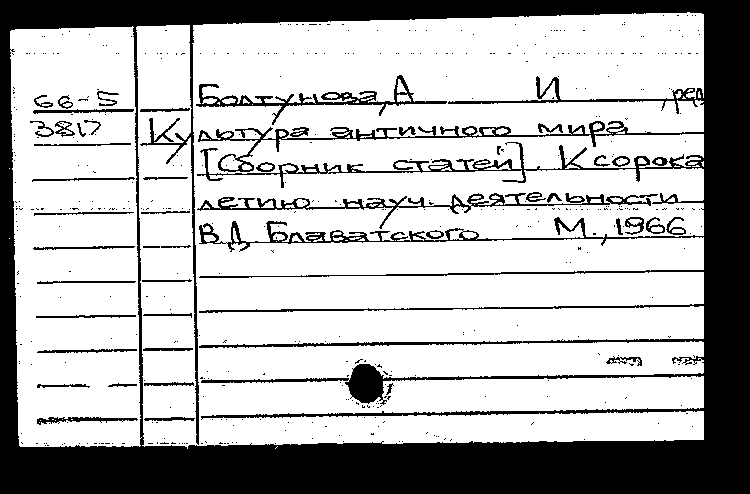 66-5 Болтунова, А И , ред
3817 Культура античного мира
[Сборник статей]. К сорока
летию науч. деятельности
В Д Блаватского М., 1966